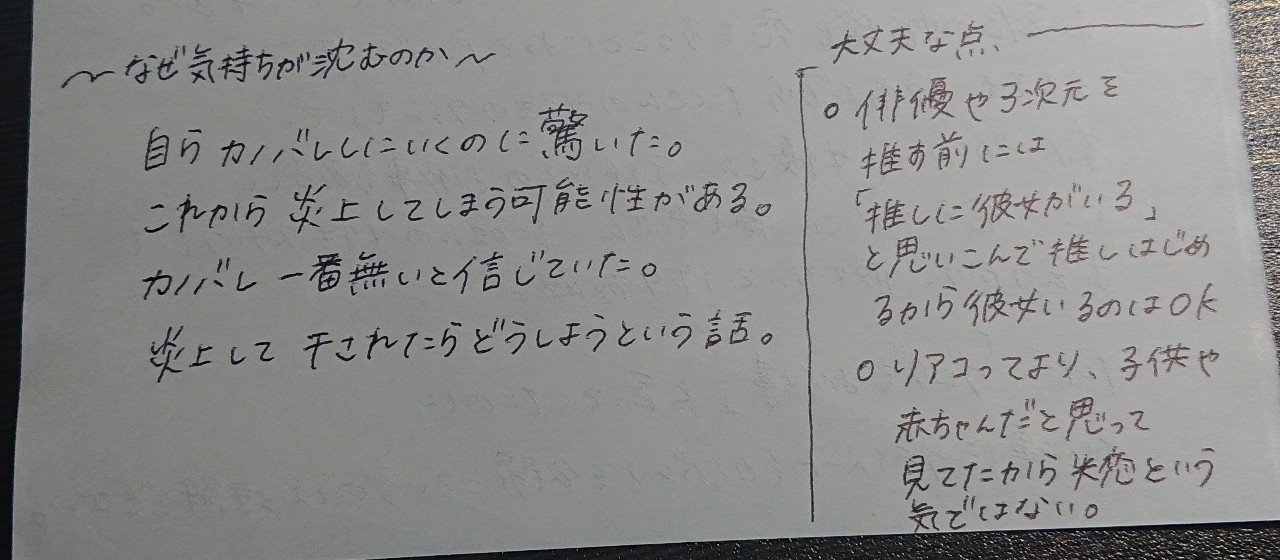 ～なぜ気持ちが沈むのか～
自らカノバレしにいくのに驚いた。
これから炎上してしまう可能性がある。
カノバレ一番無いと信じていた。
炎上して干されたらどうしようという話。
大丈夫な点、
○俳優や3次元を
推す前には
「推しに彼女がいる」
と思いこんで推しはじめ
るから彼女いるのはOK
○リアコってより、子供や
赤ちゃんだと思って
見てたから失恋という
気ではない。